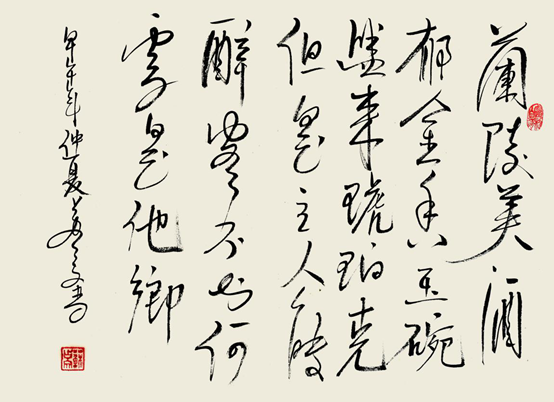 蘭陵美酒
郁金香玉碗
盛来琥珀光
但是主人能
醉客不知何
處是他鄉
年仲夏书